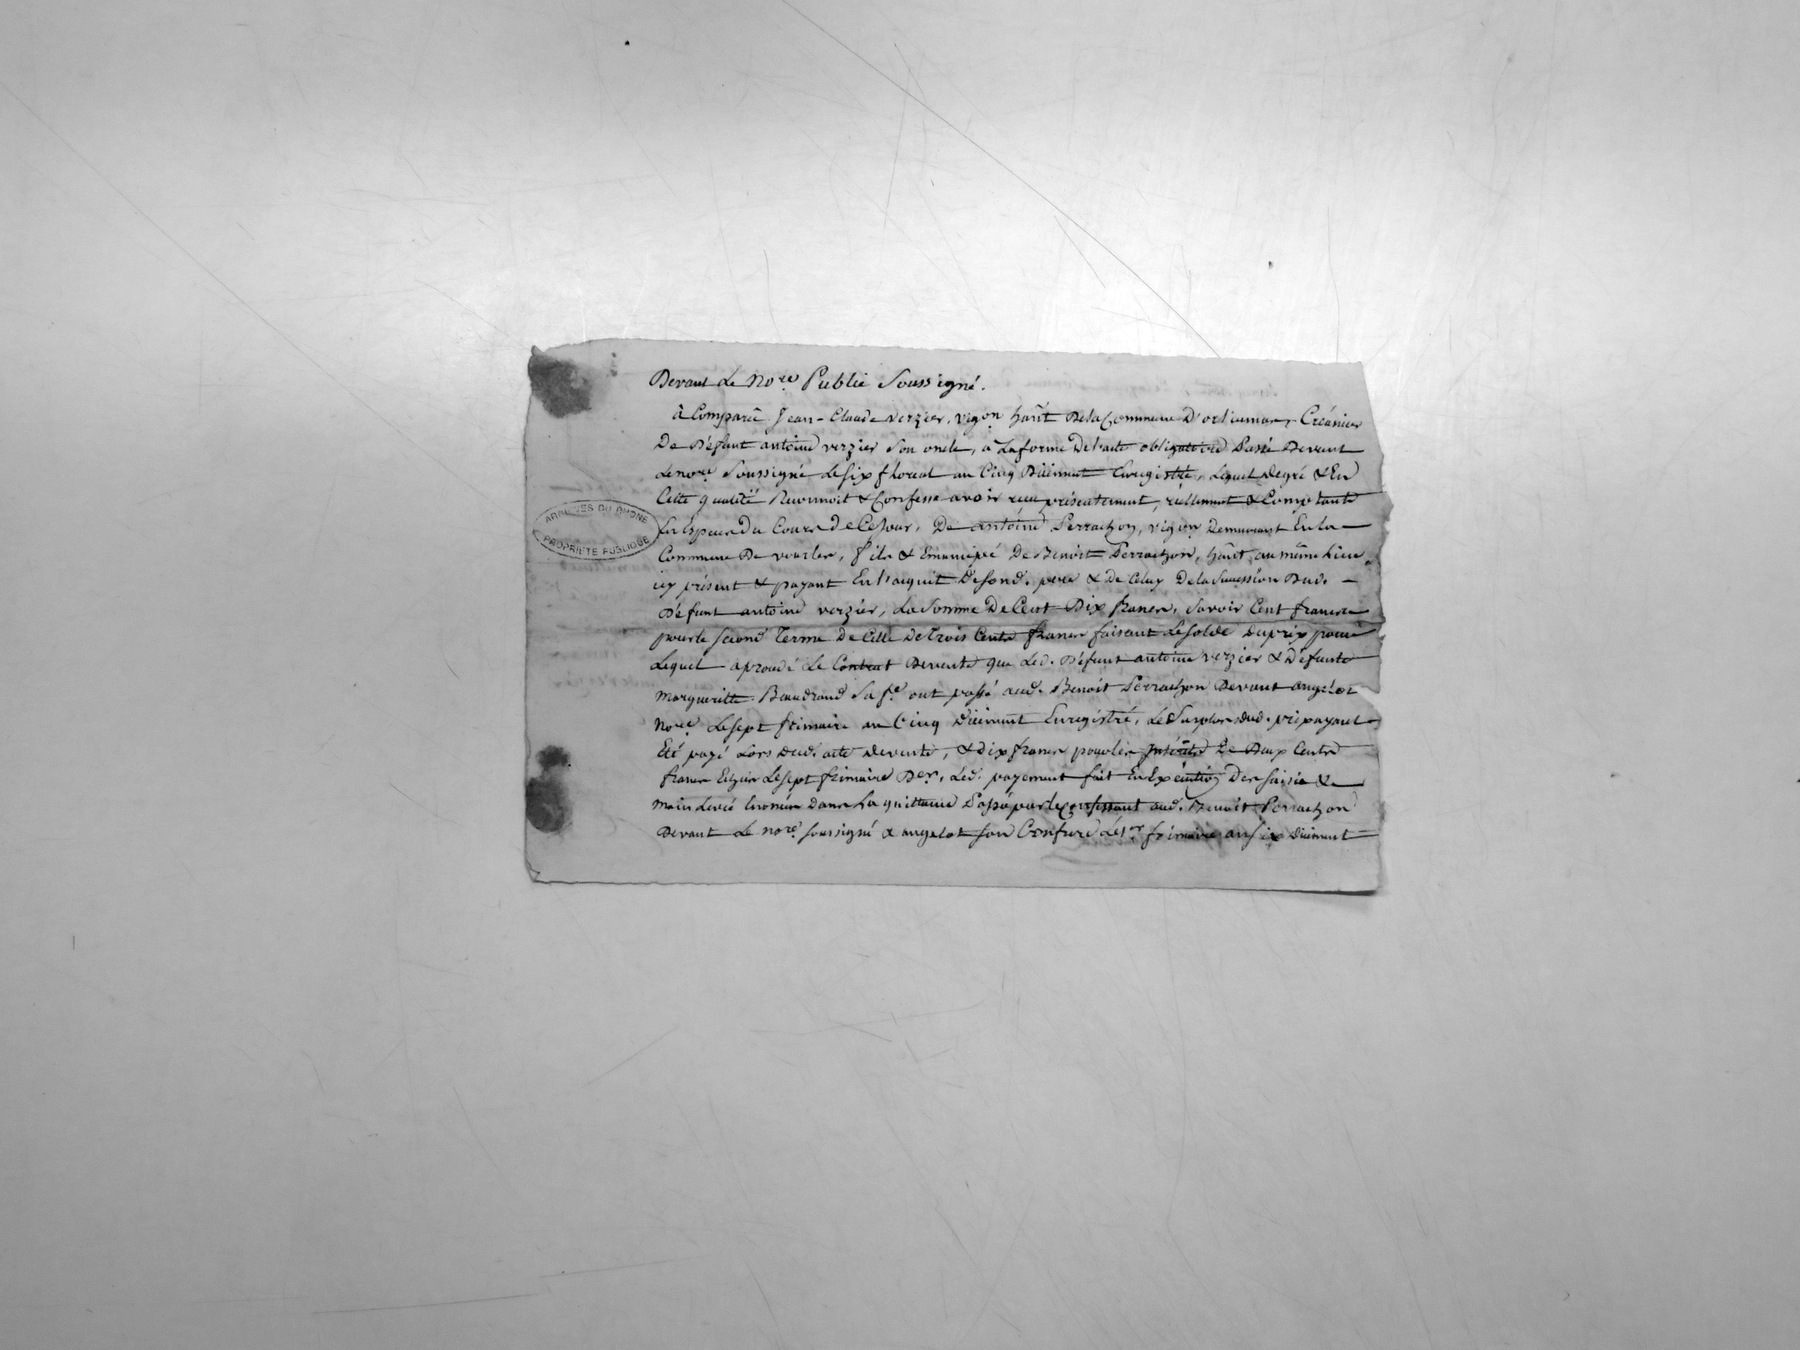 Devant Le No.re Public Soussigné.
à Comparu Jean-Claude verzier, vig.on hant De la Commune D'orlienas, Créancier
De Défunt antoine verzier Son oncle, à La forme De l'acte obligatoire Passé Devant
Le no.re Soussigné Le six floreal an Cinq Düement Enregistré, Lequel degré & En
Cette qualité Reconnoit & Confesse avoir reçu présentement, réellement & Comptant
En Espece Du Cours de Ce Jour, De antoine Perrachon, vigon Demeurant En la
Commune De vourles, fils & Emancipé De Benoit Perrachon, hant au même Lieu
icy présent & payant En l'acquit De sond. pere & De Celuy De la Succession Dud.
Défunt antoine verzier, La Somme De Cent Dix francs, Savoir Cent francs
pour le second Terme de Celle De Trois Cents francs faisant Le Solde du prix pour
Lequel a procédé Le Contrat De vente que Led. Défunt antoine verzier & Défunte
Marguerite Baudrand Sa f.e ont passé aud. Benoit Perrachon Devant angelot
No.re Le sept frimaire an Cinq Düement Enregistré, Le Surplus dud. prix ayant
Eté payé Lors dud. acte de vente, & dix francs pour les Intérêts De Deux Cents
francs Echus Le sept frimaire Der, Led. payement fait En Exécution Des saisie &
main Levée Enoncée Dans La quittance Passé par le Confessant aud. Benoit Perrachon
Devant Le no.re soussigné & angelot son Confrere Le 1.er frimaire an six Düement
ARCHIVES DU RHONE
PROPRIETE PUBLIQUE